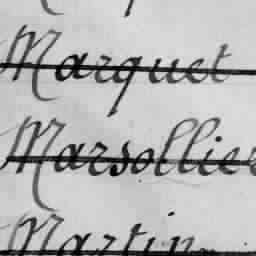 Marquet
Marsollier
Martin